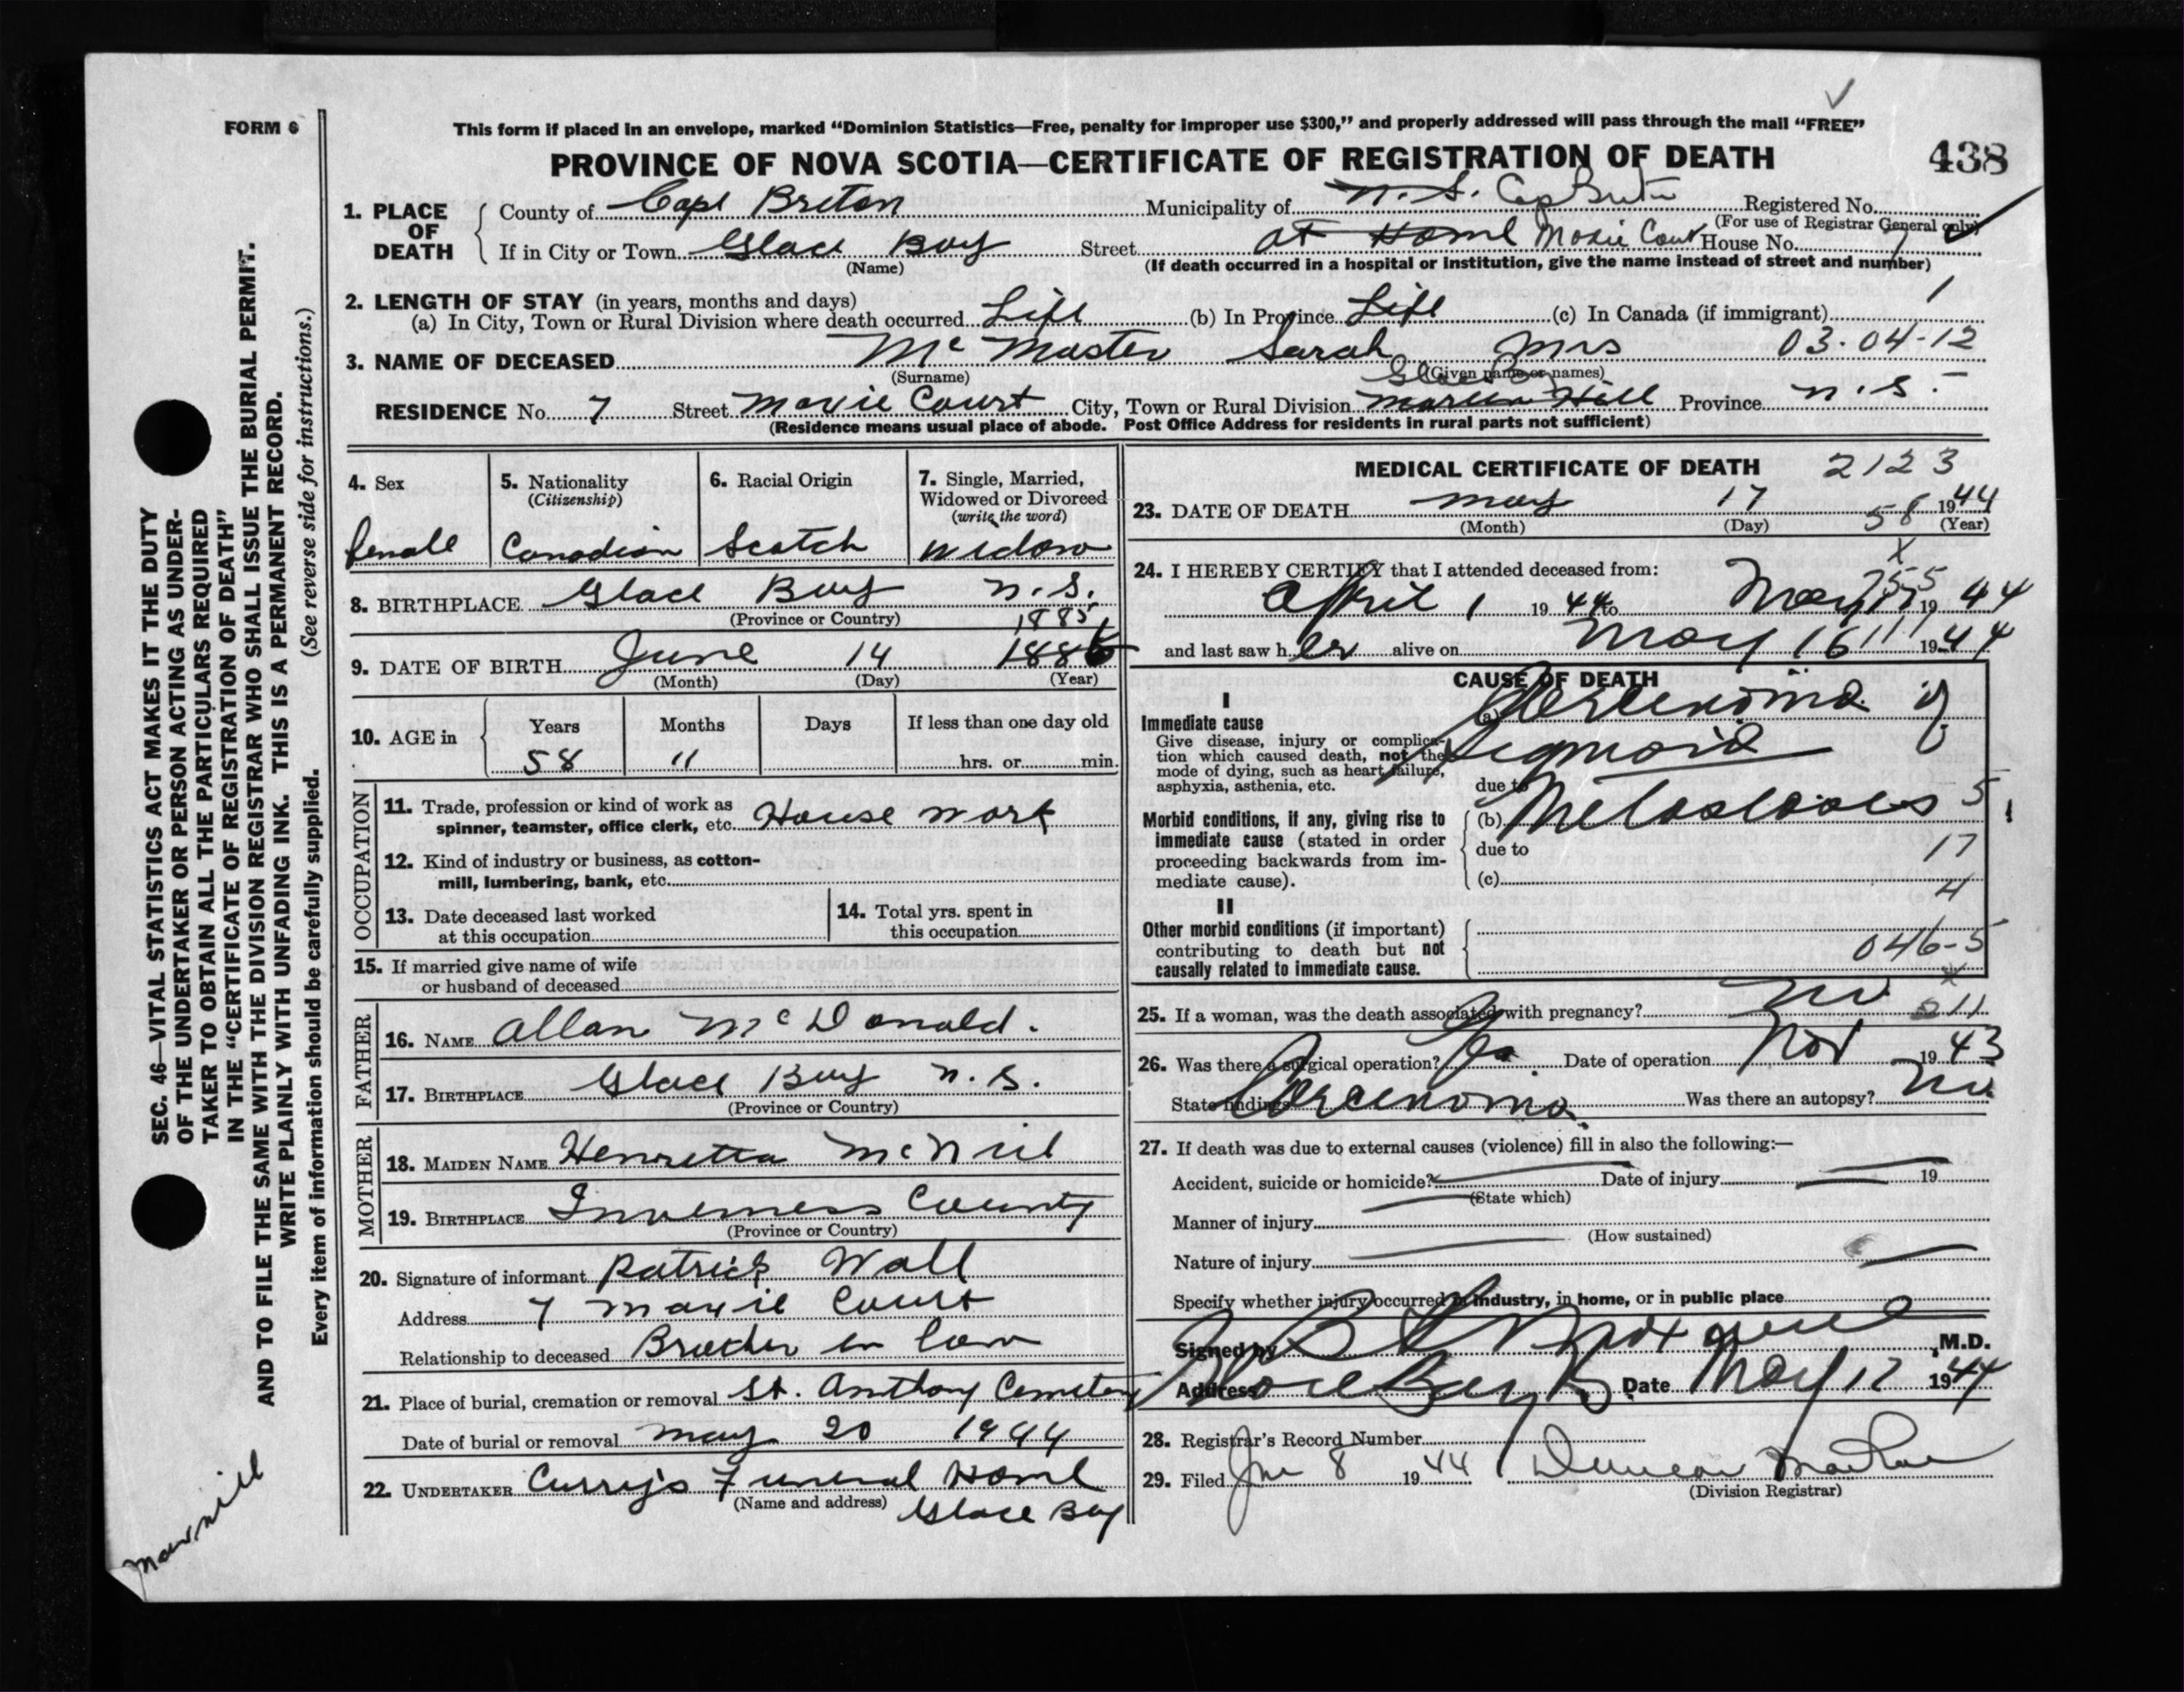 FORM 6
This form if placed in an envelope, marked “Dominion Statistics—Free, penalty for improper use $300,” and properly addressed will pass through the mail “FREE”
PROVINCE OF NOVA SCOTIA—CERTIFICATE OF REGISTRATION OF DEATH
438
1. PLACE OF DEATH { County of Cape Breton Municipality of N.S. Cap Breton Registered No.
(For use of Registrar General only)
If in City or Town Glace Bay Street at Home Moxie Court House No. 7
(Name) (If death occurred in a hospital or institution, give the name instead of street and number)
2. LENGTH OF STAY (in years, months and days) 1
(a) In City, Town or Rural Division where death occurred Life (b) In Province Life (c) In Canada (if immigrant)
3. NAME OF DECEASED Mc Master Sarah Mrs 03-04-12
(Surname) (Given name or names)
Glace Bay
RESIDENCE No. 7 Street Moxie Court City, Town or Rural Division Hill Province N.S.
(Residence means usual place of abode. Post Office Address for residents in rural parts not sufficient)
4. Sex female
5. Nationality (Citizenship) Canadian
6. Racial Origin Scotch
7. Single, Married, Widowed or Divorced (write the word) Widow
8. BIRTHPLACE Glace Bay N.S.
(Province or Country) 1885
9. DATE OF BIRTH June 14 1886
(Month) (Day) (Year)
10. AGE in { Years 58 Months 11 Days If less than one day old hrs. or min.
OCCUPATION
11. Trade, profession or kind of work as
spinner, teamster, office clerk, etc. House work
12. Kind of industry or business, as cotton-
mill, lumbering, bank, etc.
13. Date deceased last worked
at this occupation
14. Total yrs. spent in
this occupation
15. If married give name of wife
or husband of deceased
FATHER
16. NAME Allan McDonald.
17. BIRTHPLACE Glace Bay N.S.
(Province or Country)
MOTHER
18. MAIDEN NAME Henrietta McNeil
19. BIRTHPLACE Inverness County
(Province or Country)
20. Signature of informant Patrick Wall
Address 7 Moxie Court
Relationship to deceased Brother in law
21. Place of burial, cremation or removal St. Anthony Cemetery
Date of burial or removal May 20 1944
22. UNDERTAKER Curry's Funeral Home
(Name and address) Glace Bay
MEDICAL CERTIFICATE OF DEATH 2123
23. DATE OF DEATH May 17 1944
(Month) (Day) 58 (Year)
x
24. I HEREBY CERTIFY that I attended deceased from:
April 1 1944 to May 17 1944
and last saw her alive on May 16 1944
CAUSE OF DEATH
I
Immediate cause (a) Carcenoma of
Give disease, injury or complica-
tion which caused death, not the Sigmoid
mode of dying, such as heart failure,
asphyxia, asthenia, etc. due to
Morbid conditions, if any, giving rise to (b) Metastases 5
immediate cause (stated in order due to
proceeding backwards from im- 17
mediate cause). (c)
4
II
Other morbid conditions (if important)
contributing to death but not 046-5
causally related to immediate cause.
25. If a woman, was the death associated with pregnancy? No 11
26. Was there a surgical operation? Yes Date of operation Nov 1943
State findings Carcenoma Was there an autopsy? No
27. If death was due to external causes (violence) fill in also the following:—
Accident, suicide or homicide? Date of injury 19
(State which)
Manner of injury
(How sustained)
Nature of injury
Specify whether injury occurred in industry, in home, or in public place
Signed by M.D.
Address Glace Bay Date May 17 1944
28. Registrar's Record Number
29. Filed June 8 1944 Duncan MacRae
(Division Registrar)
SEC. 46—VITAL STATISTICS ACT MAKES IT THE DUTY
OF THE UNDERTAKER OR PERSON ACTING AS UNDER-
TAKER TO OBTAIN ALL THE PARTICULARS REQUIRED
IN THE “CERTIFICATE OF REGISTRATION OF DEATH”
AND TO FILE THE SAME WITH THE DIVISION REGISTRAR WHO SHALL ISSUE THE BURIAL PERMIT.
WRITE PLAINLY WITH UNFADING INK. THIS IS A PERMANENT RECORD.
Every item of information should be carefully supplied. (See reverse side for instructions.)